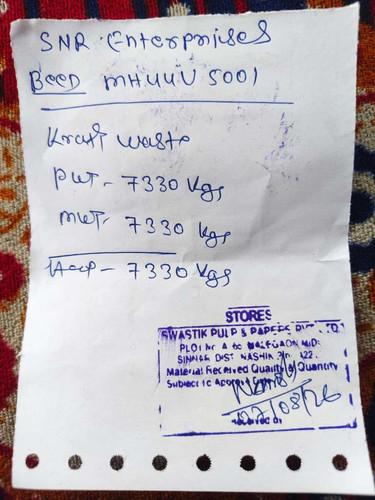 SNR Enterprises
BEED MH44U 5001
Kraft waste
PWT - 7330 Kgs
MWT - 7330 Kgs
Accp - 7330 Kgs
STORES
SWASTIK PULP & PAPERS
PLOT A MALEGAON MIDC
SINNAR DIST NASHIK 422
Material Received Quality & Quantity
Subject to
07/08/26